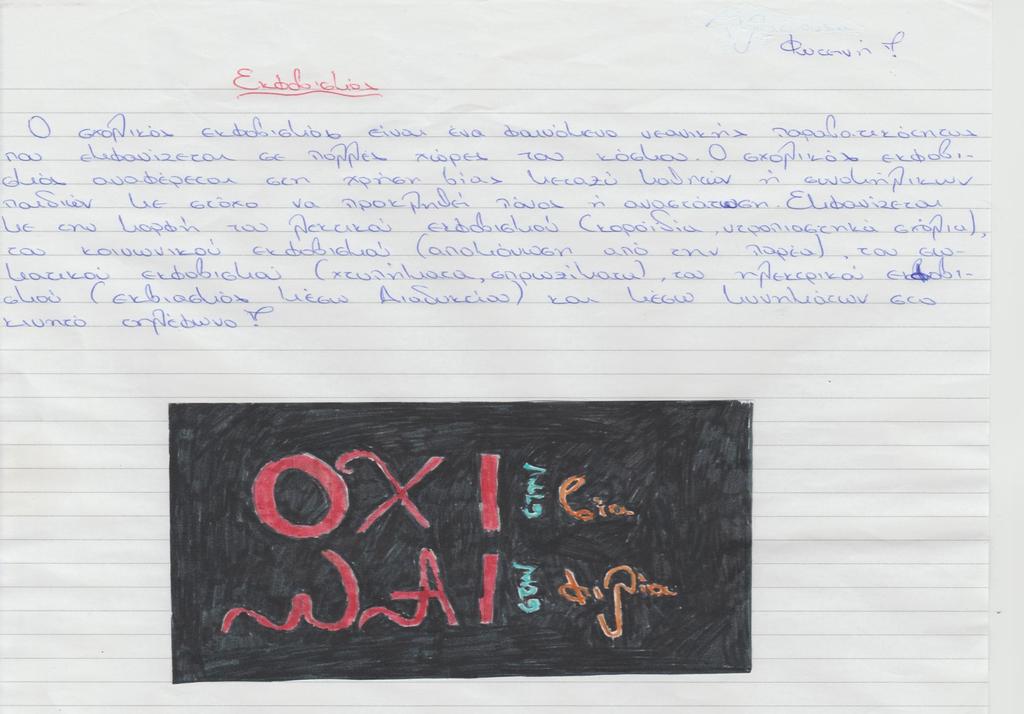 Φωτεινή
Εκφοβισμός
Ο σχολικός εκφοβισμός είναι ένα φαινόμενο νεανικής παραβατικότητας
που εμφανίζεται σε πολλές χώρες του κόσμου. Ο σχολικός εκφοβι-
σμός αναφέρεται στη χρήση βίας μεταξύ μαθητών ή συνομήλικων
παιδιών με στόχο να προκληθεί πόνος ή αναστάτωση. Εμφανίζεται
με την μορφή του λεκτικού εκφοβισμού (κοροϊδία, ντροπιαστηκά σχόλια),
του κοινωνικού εκφοβισμού (απομόνωση από την παρέα), του σω-
ματικού εκφοβισμού (χτυπήματα, σπρωξίματα), του ηλεκτρικού εκφοβι-
σμού (εκβιασμός μέσω Διαδυκτίου) και μέσω μυνημάτων στο
κινητό τηλέφωνο
ΟΧΙ στην βία
ΝΑΙ στην φιλία